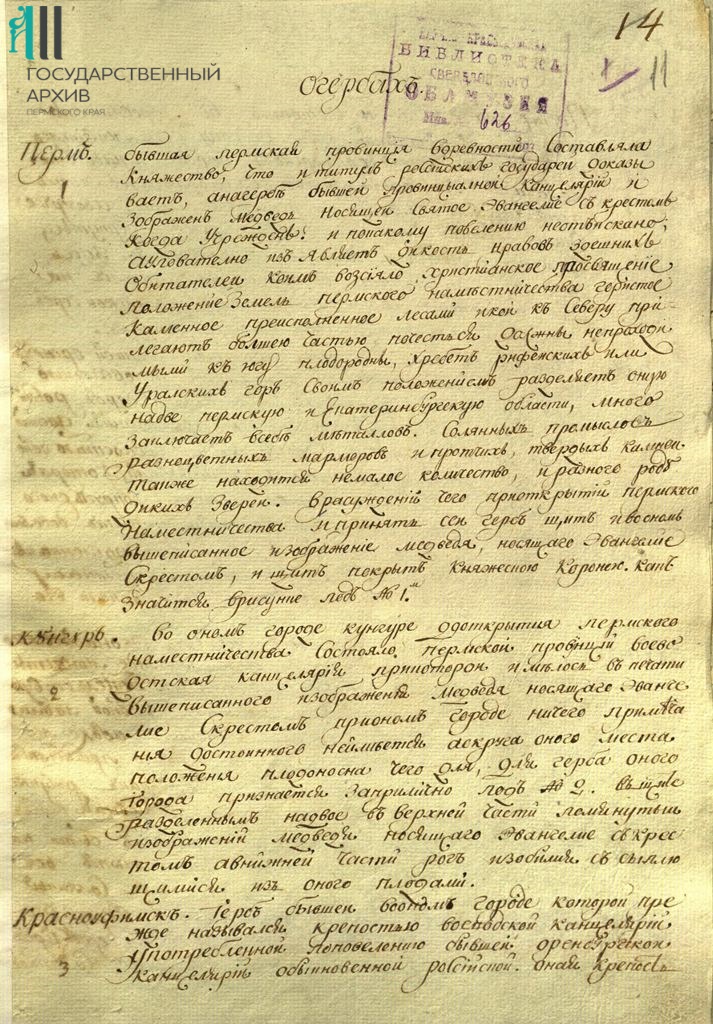 ГОСУДАРСТВЕННЫЙ
АРХИВ
ПЕРМСКОГО КРАЯ
14
11
БИБЛИОТЕКА
ОБЛМУЗЕЯ
626
О гербахъ.
Пермь.
1
бывшая пермская провинция вдревности Составляла
Княжество, что и титулъ россійскихъ государей доказы
ваетъ, анагербѣ бывшей провинциальной Канцелярїи и
зображенъ медведь носящей Святое Эвангелие съ крестомъ
Когда Учрежденъ: и потакому повелению нестыскано,
изъявляетъ дикость нравовъ здешнихъ
Обитателей коимъ возсїяло христианское просвящение
положение земель пермского намѣстничества гористое
Каменное преисполненное лесами и кои къ Северу при
легаютъ большею частью непроходи
мыми къ югу плодородны, хребетъ рифейскихъ или
Уральскихъ горъ Своимъ положениемъ разделяетъ оную
надве пермскую и Екатеринбургскую области, много
заключаетъ всебѣ мѣталловъ. Солянныхъ промысловъ
разноцветныхъ марморовъ и протчихъ, твердыхъ камней
также находится немалое количество, и разного рода
дикихъ Зверей. Врасуждении чего приоткрытїи пермского
Наместничества и принятъ сей гербъ щитъ
вышеписанное изображение медведя, носящаго Эвангелие
Скрестомъ, и щитъ покрытъ Княжескою Короною. какъ
Значится врисунке подъ № 1.м
Кунгуръ.
2
Во ономъ городе кунгуре доткрытия пермского
наместничества Состояло пермской провинции воево
дская канцелярїя прикоторой имѣлось въ печати
вышеписанного изображенїи медведя носящаго Эванге
лие Скрестомъ приономъ городе ничего примѣча
ния достойнаго неимеется аокруга оного места
положения плодоносна чего для, для герба оного
города признается заприлично подъ № 2. въ щите
разделенномъ надвое въ верхней части помянутыи
изображенїй медведя носящаго Эвангелие съ крес
томъ авнижней части рогъ изобилия съ сыплю
щимися изъ оного плодами.
Красноуфимскъ.
3
Гербъ бывшей воономъ городе которой пре
жде назывался крепостью воеводской канцелярїи
употребленной поповелению бывшей оренбургской
канцелярїи обыкновенной россїйской. оная крепость